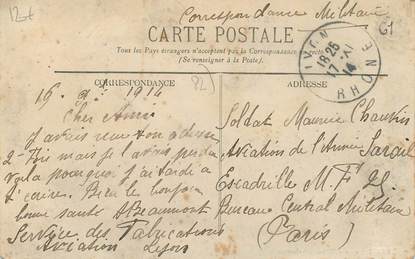 Correspondance Militaire
CARTE POSTALE
Tous les Pays étrangers n'acceptent pas la Correspondance
(Se renseigner à la Poste.)
LYON
18 25
17 -XI
14
RHONE
CORRESPONDANCE
16 1914
Cher Ami
J'avais reçu ton adresse
mais je l'avais perdu
voila pourquoi j'ai tardé à
t'écrire. Bien le bonjour
bonne santé ABeaumont
Service des Fabrications
Aviation Lyon
ADRESSE
Soldat Maurice Chauvin
Aviation de l'Armée
Escadrille M. F 25
Bureau Central Militaire
(Paris)